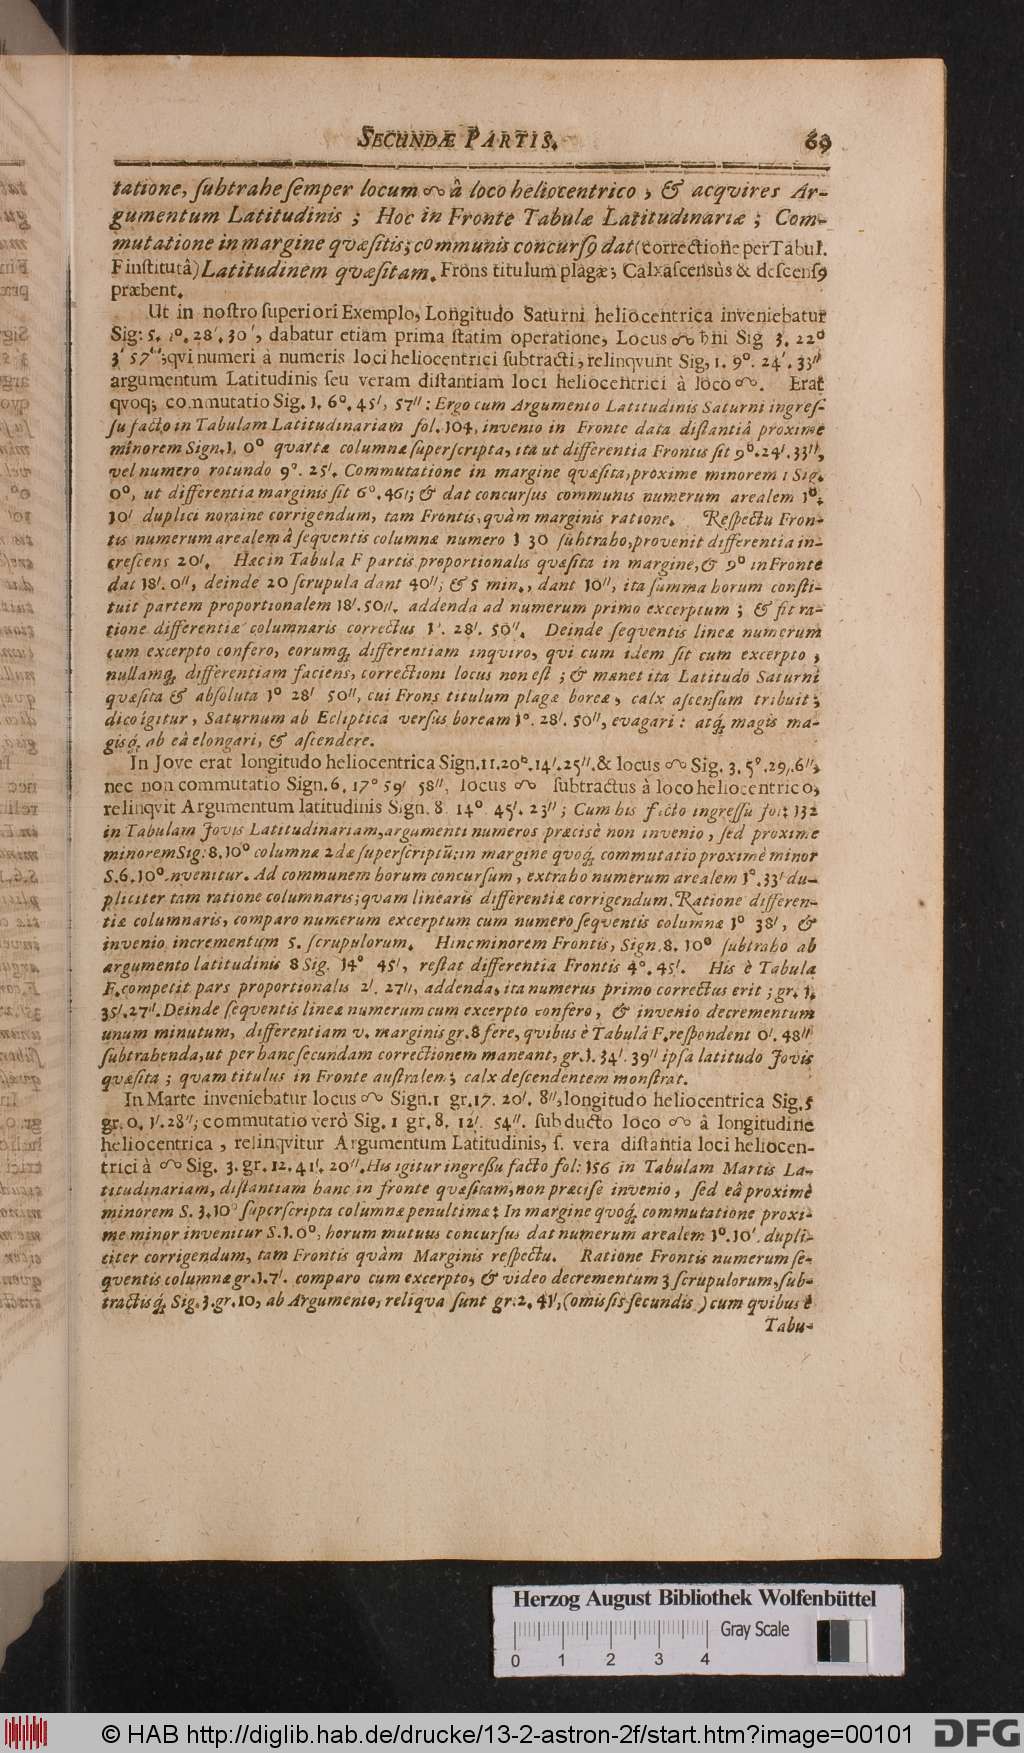 SECUNDÆ PARTIS. 69
tatione, ſubtrahe ſemper locum ☊ â loco heliocentrico, & acqvires Ar-
gumentum Latitudinis; Hoc in Fronte Tabulæ Latitudinariæ; Com-
mutatione in margine qvæſitis; communis concurſꝰ dat (correctione per Tabul.
F inſtitutâ) Latitudinem qvæſitam. Frons titulum plagæ; Calx aſcensûs & deſcenſꝰ
præbent.
Ut in noſtro ſuperiori Exemplo, Longitudo Saturni heliocentrica inveniebatur
Sig: 5. 1°. 28′. 30′, dabatur etiam prima ſtatim operatione, Locus ☊ ♄ni Sig 3. 22°
3′ 57′′; qvi numeri à numeris loci heliocentrici ſubtracti, relinqvunt Sig, 1. 9°. 24′. 33′′
argumentum Latitudinis ſeu veram diſtantiam loci heliocentrici à loco ☊. Erat
qvoq; commutatio Sig. 1. 6°. 45′, 57′′: Ergo cum Argumento Latitudinis Saturni ingreſ-
ſu facto in Tabulam Latitudinariam fol. 104, invenio in Fronte data diſtantiâ proxime
minorem Sign. 1. 0° quartæ columnæ ſuperſcripta, ita ut differentia Frontis ſit 9°. 24′. 33′′,
vel numero rotundo 9°. 25′. Commutatione in margine qvæſita, proxime minorem 1 Sig.
0°, ut differentia marginis ſit 6°. 46′; & dat concurſus communis numerum arealem 1°.
10′ duplici nomine corrigendum, tam Frontis, quàm marginis ratione. Reſpectu Fron-
tis numerum arealem â ſeqventis columnæ numero 1 30 ſubtraho, provenit differentia in-
creſcens 20′. Hæc in Tabula F partis proportionalis quæſita in margine, & 9° in Fronte
dat 18′. 0′′, deinde 20 ſcrupula dant 40′′; & 5 min., dant 10′′, ita ſumma horum conſti-
tuit partem proportionalem 18′. 50′′. addenda ad numerum primo excerptum; & fit ra-
tione differentiæ columnaris correctus 1°. 28′. 50′′. Deinde ſeqventis lineæ numerum
cum excerpto confero, eorumq́; differentiam inqviro, qvi cum idem ſit cum excerpto,
nullamq́; differentiam faciens, correctioni locus non eſt; & manet ita Latitudo Saturni
quæſita & abſoluta 1° 28′ 50′′, cui Frons titulum plagæ boreæ, calx aſcenſum tribuit;
dico igitur, Saturnum ab Ecliptica verſus boream 1°. 28′. 50′′, evagari: atq́; magis ma-
gisq́; ab eâ elongari, & aſcendere.
In Jove erat longitudo heliocentrica Sign. 11. 20°. 14′. 25′′. & locus ☊ Sig. 3. 5°. 29′. 6′′,
nec non commutatio Sign. 6. 17° 59′ 58′′, locus ☊ ſubtractus à loco heliocentrico,
relinqvit Argumentum latitudinis Sign. 8 14° 45′. 23′′; Cum his facto ingreſſu fol: 132
in Tabulam Jovis Latitudinariam, argumenti numeros præcisè non invenio, ſed proxime
minorem Sig: 8. 10° columnæ 2dæ ſuperſcriptū: in margine quoq́; commutatio proximè minor
S. 6. 10°. nvenitur. Ad communem horum concurſum, extraho numerum arealem 1°. 33′ du-
pliciter tam ratione columnaris; quam linearis differentiæ corrigendum. Ratione differen-
tiæ columnaris, comparo numerum excerptum cum numero ſeqventis columnæ 1° 38′, &
invenio incrementum 5. ſcrupulorum. Hinc minorem Frontis, Sign. 8. 10° ſubtraho ab
argumento latitudinis 8 Sig. 14° 45′, reſtat differentia Frontis 4°. 45′. His è Tabula
F. competit pars proportionalis 2′. 27′′, addenda, ita numerus primo correctus erit; gr. 1.
35′. 27′′. Deinde ſeqventis lineæ numerum cum excerpto confero, & invenio decrementum
unum minutum, differentiam v. marginis gr. 8 fere, qvibus è Tabulâ F. reſpondent 0′. 48′′
ſubtrahenda, ut per hanc ſecundam correctionem maneant, gr. 1. 34′. 39′′ ipſa latitudo Jovis
quæſita; quam titulus in Fronte auſtralem; calx deſcendentem monſtrat.
In Marte inveniebatur locus ☊ Sign. 1 gr. 17. 20′. 8′′, longitudo heliocentrica Sig. 5
gr. 0. 1′. 28′′; commutatio verò Sig. 1 gr. 8. 12′. 54′′. ſubducto loco ☊ à longitudine
heliocentrica, relinqvitur Argumentum Latitudinis, ſ. vera diſtantia loci heliocen-
trici à ☊ Sig. 3. gr. 12. 41′. 20′′. His igitur ingreßu facto fol: 156 in Tabulam Martis La-
titudinariam, diſtantiam hanc in fronte quæſitam, non præciſe invenio, ſed eâ proximè
minorem S. 3. 10° ſuperſcripta columnæ penultimæ: In margine quoq́; commutatione proxi-
me minor invenitur S. 1. 0°, horum mutuus concurſus dat numerum arealem 1°. 10′. dupli-
citer corrigendum, tam Frontis quàm Marginis reſpectu. Ratione Frontis numerum ſe-
qventis columnæ gr. 1. 7′. comparo cum excerpto, & video decrementum 3 ſcrupulorum, ſub-
tractisq́; Sig. 3. gr. 10, ab Argumento, reliqva ſunt gr. 2. 41′, (omiſſis ſecundis) cum qvibus è
Tabu-
Herzog August Bibliothek Wolfenbüttel
Gray Scale
0 1 2 3 4
© HAB http://diglib.hab.de/drucke/13-2-astron-2f/start.htm?image=00101
DFG